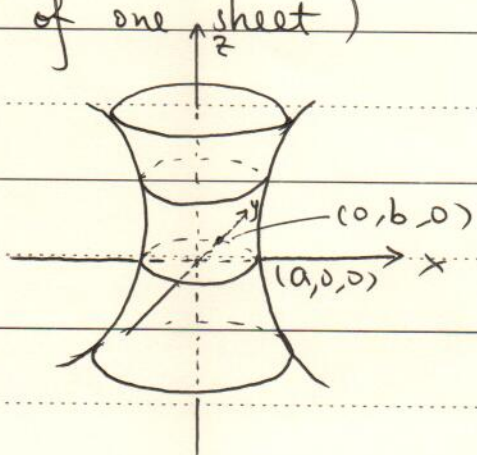 of one sheet)
z
y
(0,b,0)
(a,0,0)
x